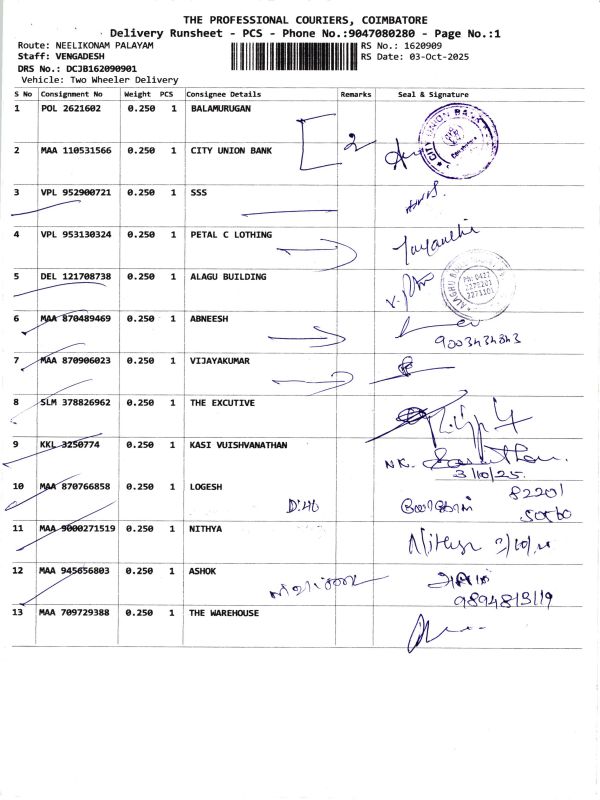 THE PROFESSIONAL COURIERS, COIMBATORE
Delivery Runsheet - PCS - Phone No.:9047080280 - Page No.:1
Route: NEELIKONAM PALAYAM RS No.: 1620909
Staff: VENGADESH RS Date: 03-Oct-2025
DRS No.: DCJB162090901
Vehicle: Two Wheeler Delivery
S No Consignment No Weight PCS Consignee Details Remarks Seal & Signature
1 POL 2621602 0.250 1 BALAMURUGAN
CITY UNION BANK
2 MAA 110531566 0.250 1 CITY UNION BANK 2
3 VPL 952900721 0.250 1 SSS
4 VPL 953130324 0.250 1 PETAL C LOTHING Jayanthi
5 DEL 121708738 0.250 1 ALAGU BUILDING
PH: 0422
6 MAA 870489469 0.250 1 ABNEESH
7 MAA 870906023 0.250 1 VIJAYAKUMAR
8 SLM 378826962 0.250 1 THE EXCUTIVE
9 KKL 3250774 0.250 1 KASI VUISHVANATHAN
NK.
3/10/25.
10 MAA 870766858 0.250 1 LOGESH
82201
50560
11 MAA 9000271519 0.250 1 NITHYA Nithya
12 MAA 945656803 0.250 1 ASHOK
13 MAA 709729388 0.250 1 THE WAREHOUSE